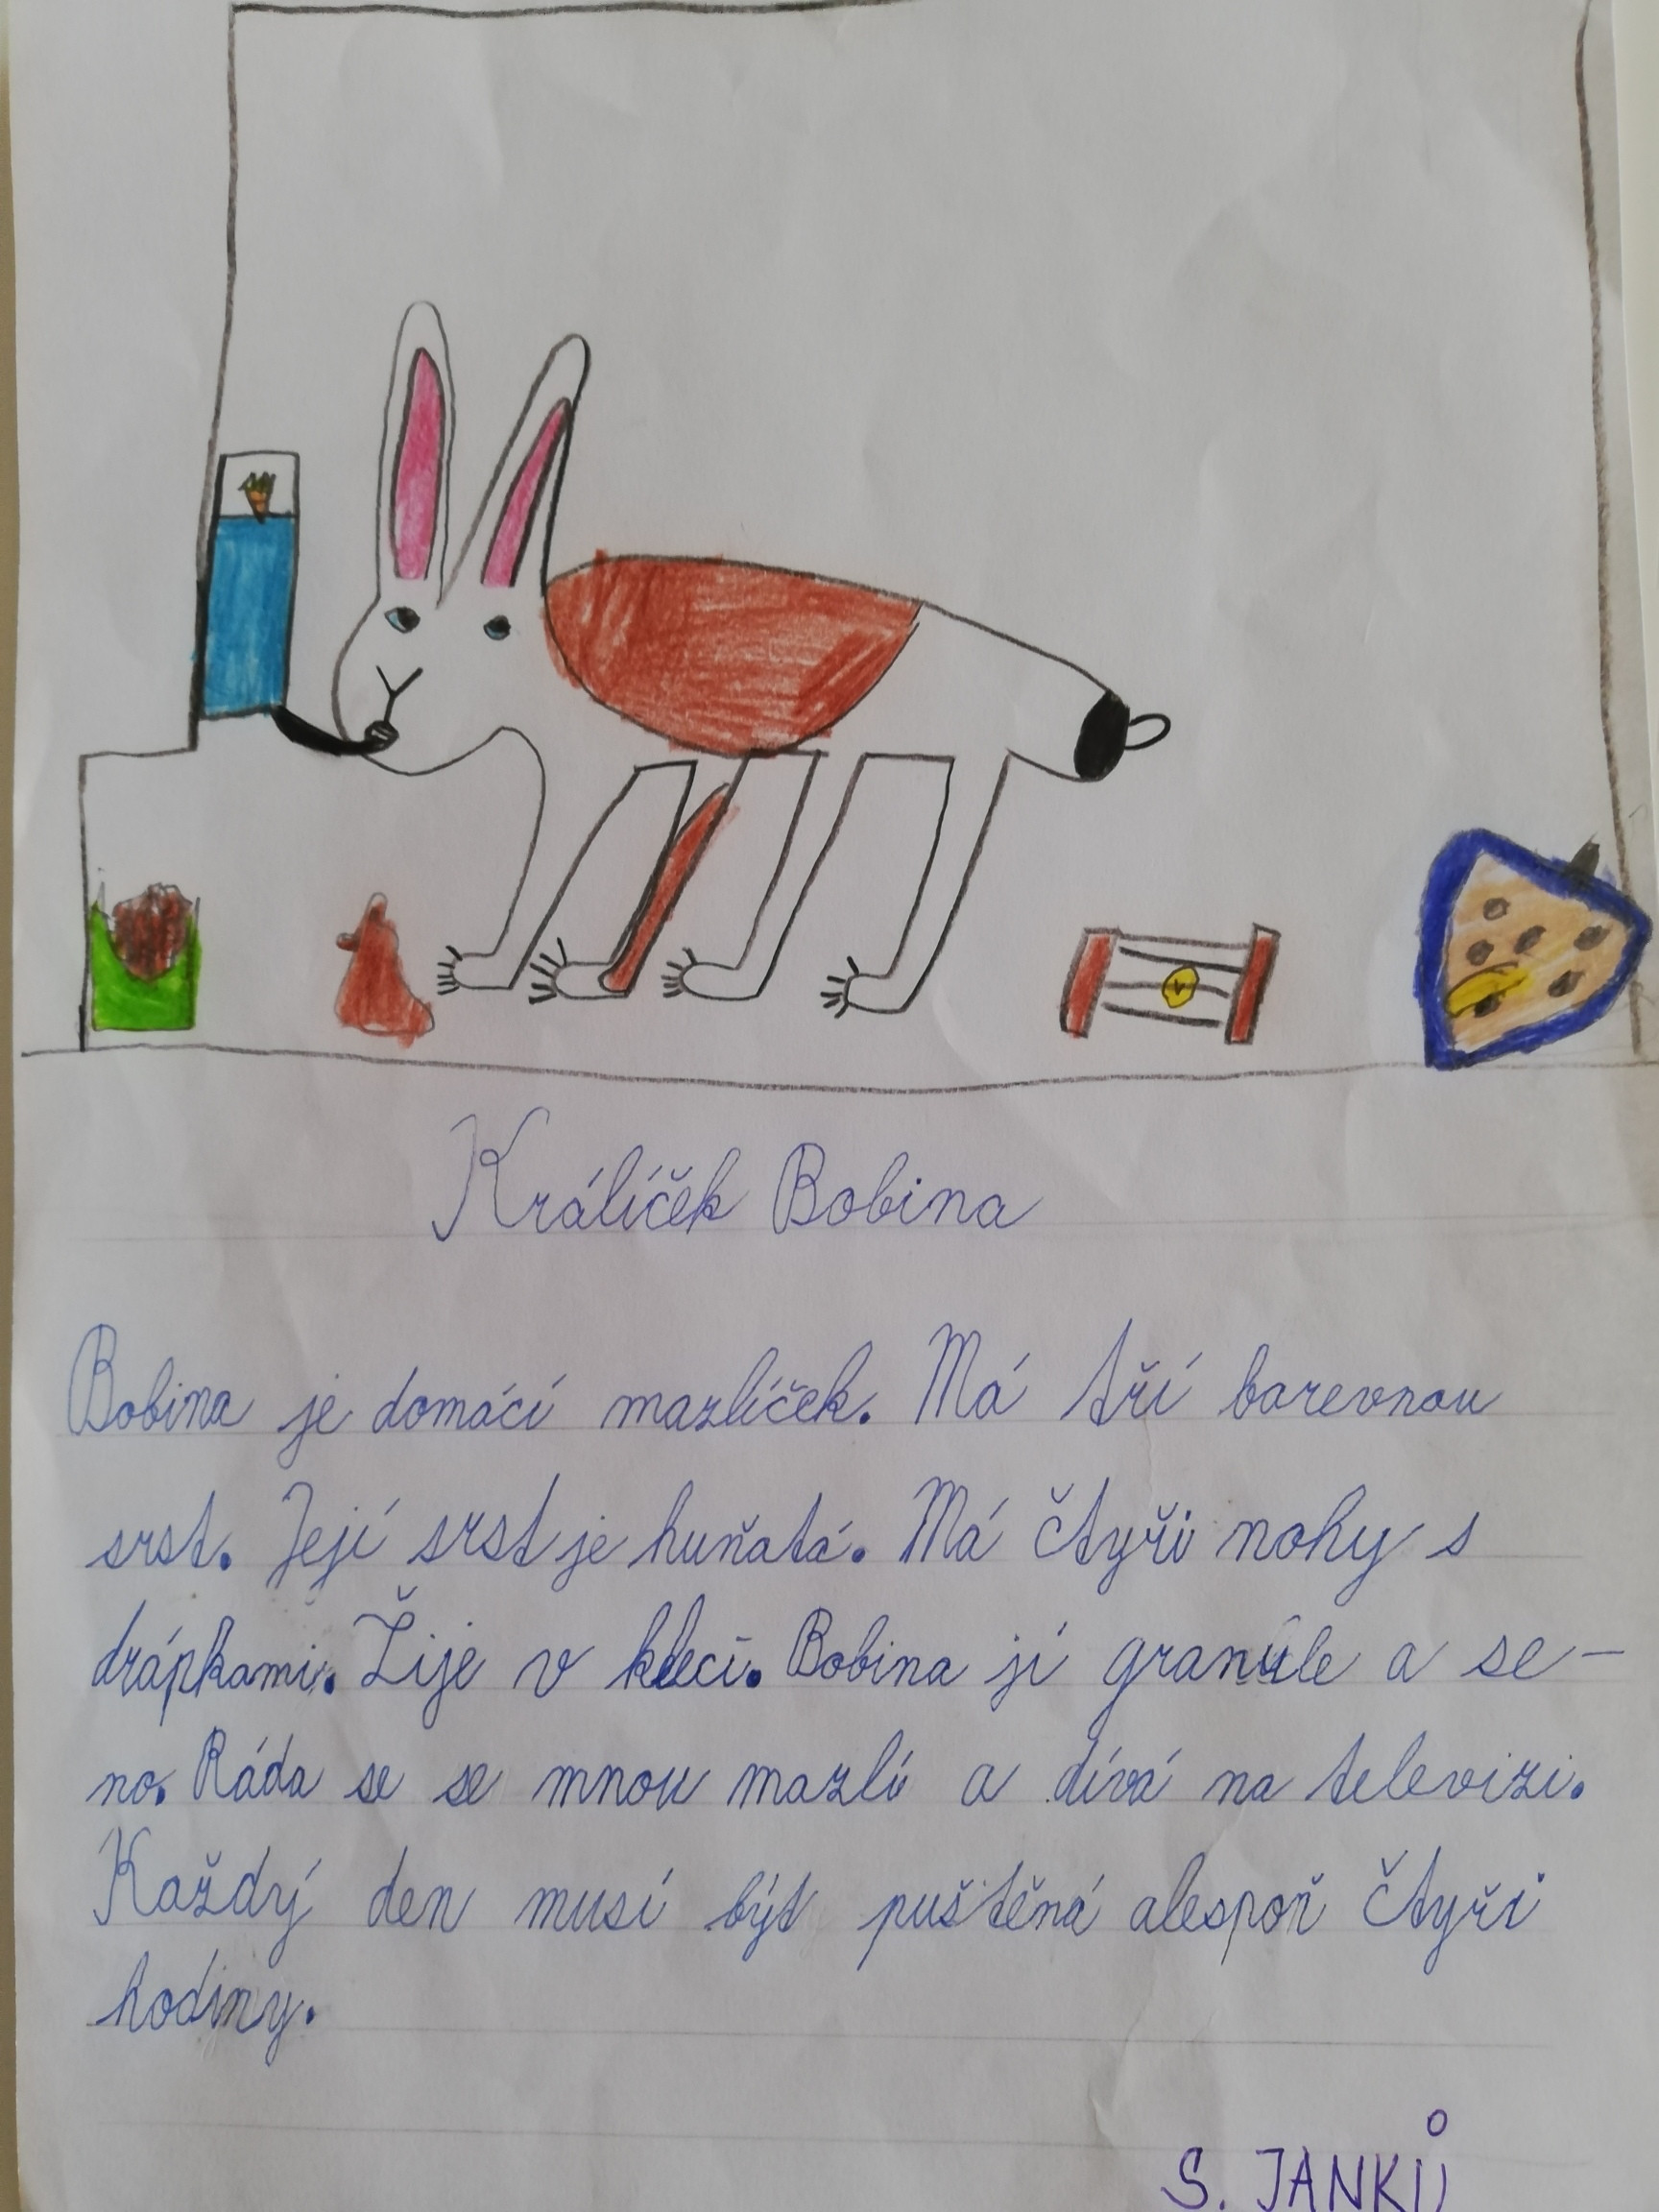 Králíček Bobina
Bobina je domácí mazlíček. Má tří barevnou
srst. Její srst je huňatá. Má čtyři nohy s
drápkami. Žije v kleci. Bobina jí granule a se-
no. Ráda se se mnou mazlí a dívá na televizi.
Každý den musí být puštěná alespoň čtyři
hodiny.
S. JANKŮ